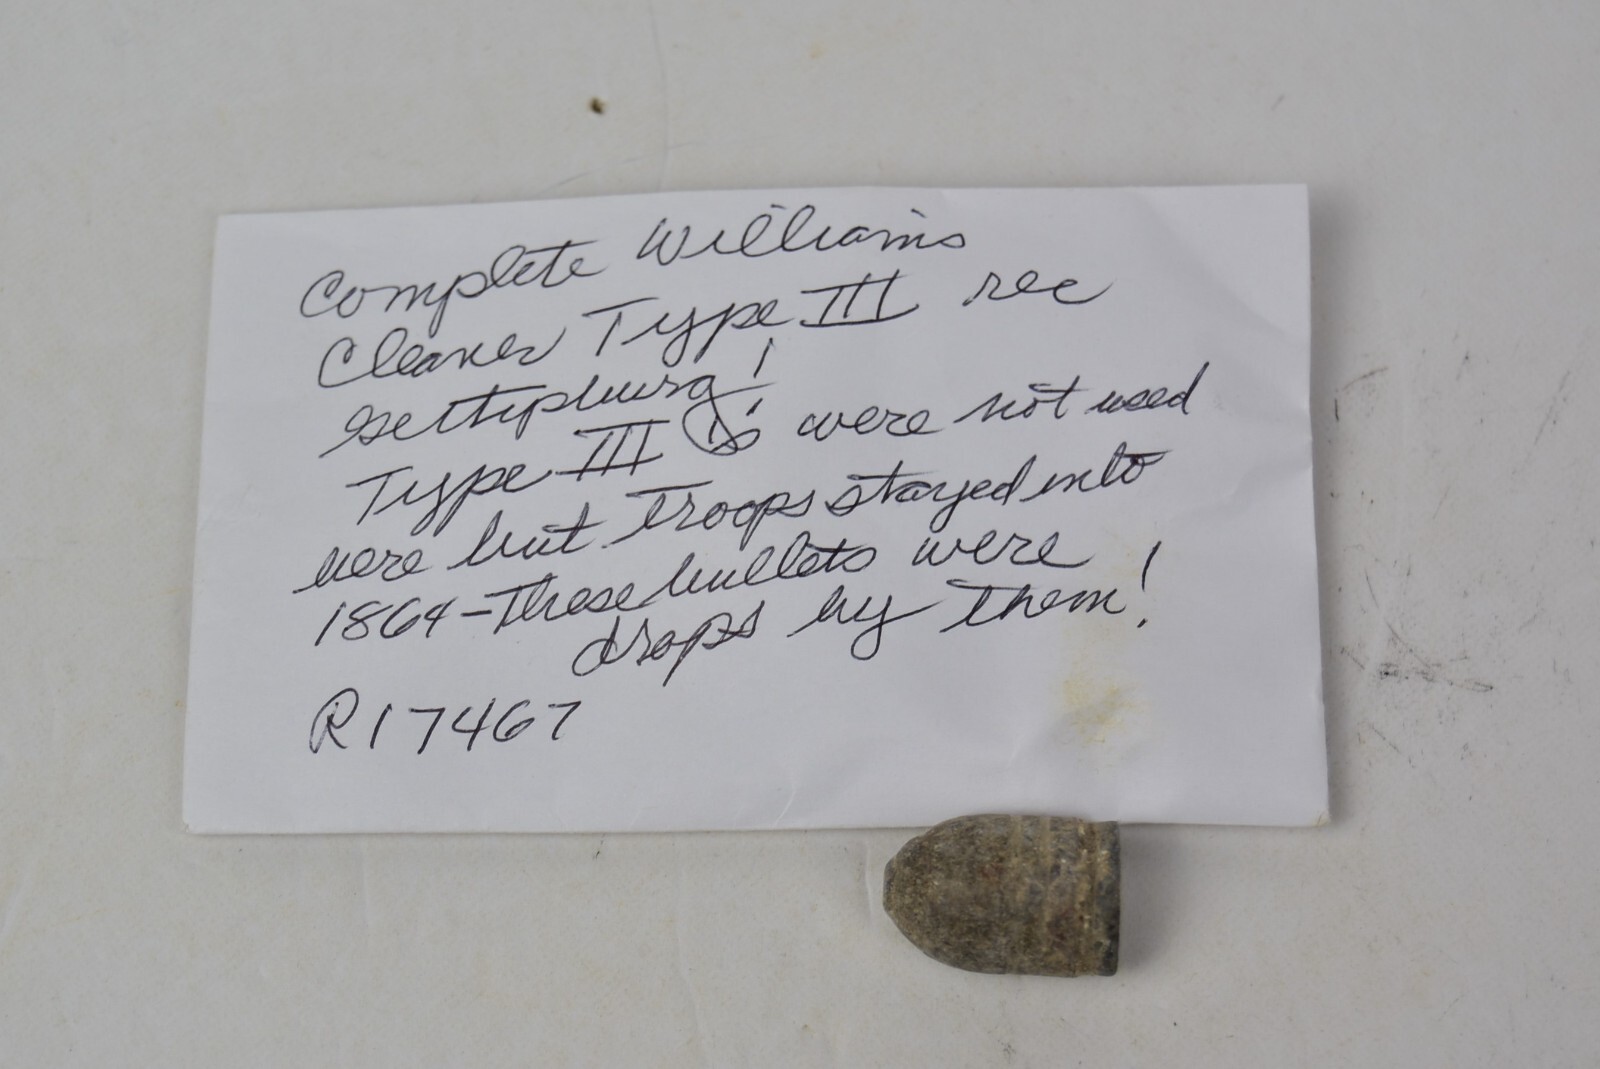 Complete Williams
Cleaner Type III rec
Gettysburg!
Type III's were not used
here but troops stayed into
1864-These bullets were
drops by them!
R17467